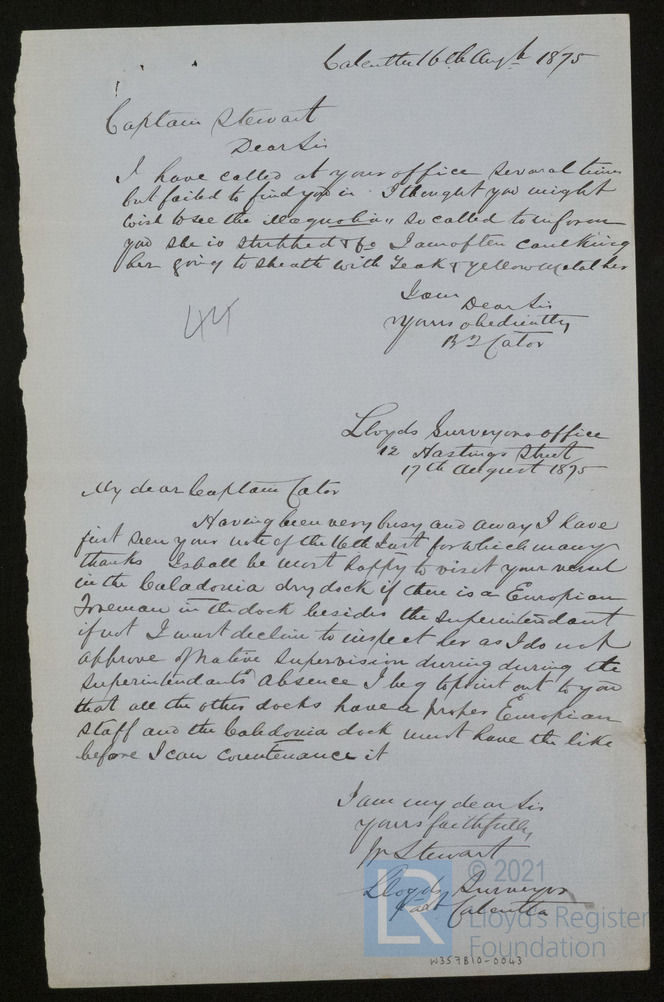 Calcutta 16th Augt 1875
Captain Stewart
Dear Sir
I have called at your office several times
but failed to find you in. I thought you might
wish to see the Magnolia so called to inform
you she is stripped & I am often caulking
her going to sheath with Teak & yellow metal her
I am Dear Sir
Yours obediently
Cator
44
Lloyds Surveyors office
12 Hastings Street
17th August 1875
My dear Captain Cator
Having been very busy and away I have
just seen your note of the 16th Inst for which many
thanks I shall be most happy to visit your vessel
in the Caladonia dry dock if there is a European
Foreman in the dock besides the Superintendant
if not I must decline to inspect her as I do not
approve of native supervision during during the
Superintendants absence I beg to point out to you
that all the other docks have a proper European
staff and the Caledonia dock must have the like
before I can countenance it
I am my dear Sir
yours faithfully
Stewart
Lloyds Surveyor
Calcutta
© 2021
LR
Lloyd's Register
Foundation
W357810-0043